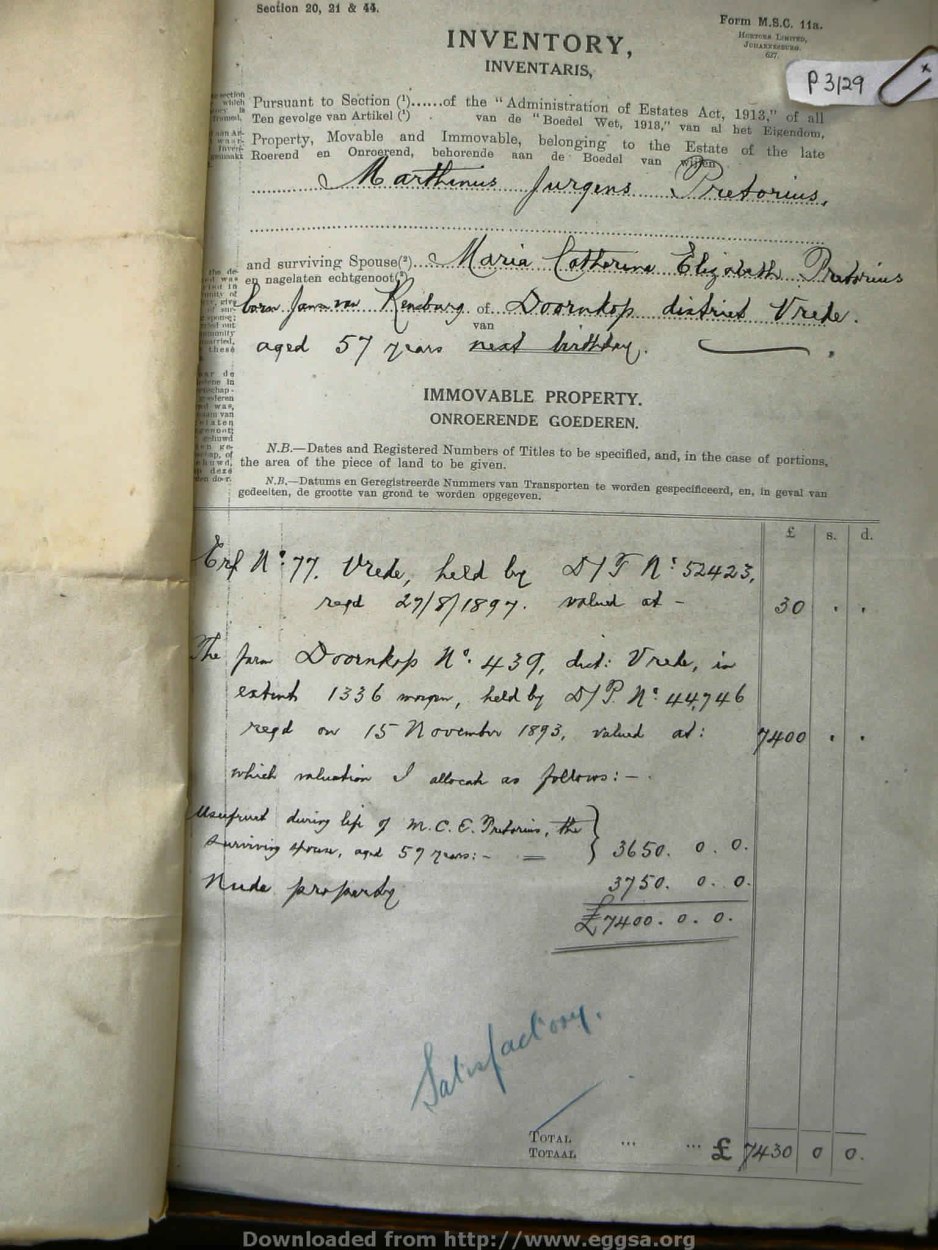 Section 20, 21 & 44.
Form M.S.C. 11a.
HORTORS LIMITED,
JOHANNESBURG.
627.
P 3/29
INVENTORY,
INVENTARIS,
Pursuant to Section (¹)......of the "Administration of Estates Act, 1913," of all
Ten gevolge van Artikel (¹) . van de "Boedel Wet, 1913," van al het Eigendom,
Property, Movable and Immovable, belonging to the Estate of the late
Roerend en Onroerend, behorende aan de Boedel van wijlen
Marthinus Jurgens Pretorius,
and surviving Spouse(²) Maria Catherina Elizabeth Pretorius
en nagelaten echtgenoot(²)
born Jansen van Rensburg of Doornkop district Vrede.
van
aged 57 years next birthday.
IMMOVABLE PROPERTY.
ONROERENDE GOEDEREN.
N.B.—Dates and Registered Numbers of Titles to be specified, and, in the case of portions,
the area of the piece of land to be given.
N.B.—Datums en Geregistreerde Nummers van Transporten te worden gespecificeerd, en, in geval van
gedeelten, de grootte van grond te worden opgegeven.
£ s. d.
Erf No. 77. Vrede, held by D/T No: 52423,
regd 27/8/1897. valued at - 30 . .
The farm Doornkop No. 439, dist: Vrede, in
extent 1336 morgen, held by D/T. No: 44,746
regd on 15 November 1893, valued at: 7400 . .
which valuation I allocate as follows: -
Usufruct during life of M.C.E. Pretorius, the
surviving spouse, aged 57 years: - = } 3650. 0. 0.
Nuda property 3750. 0. 0.
£7400. 0. 0.
Satisfactory.
TOTAL ... ... £ 7430 0 0.
TOTAAL
Downloaded from http://www.eggsa.org